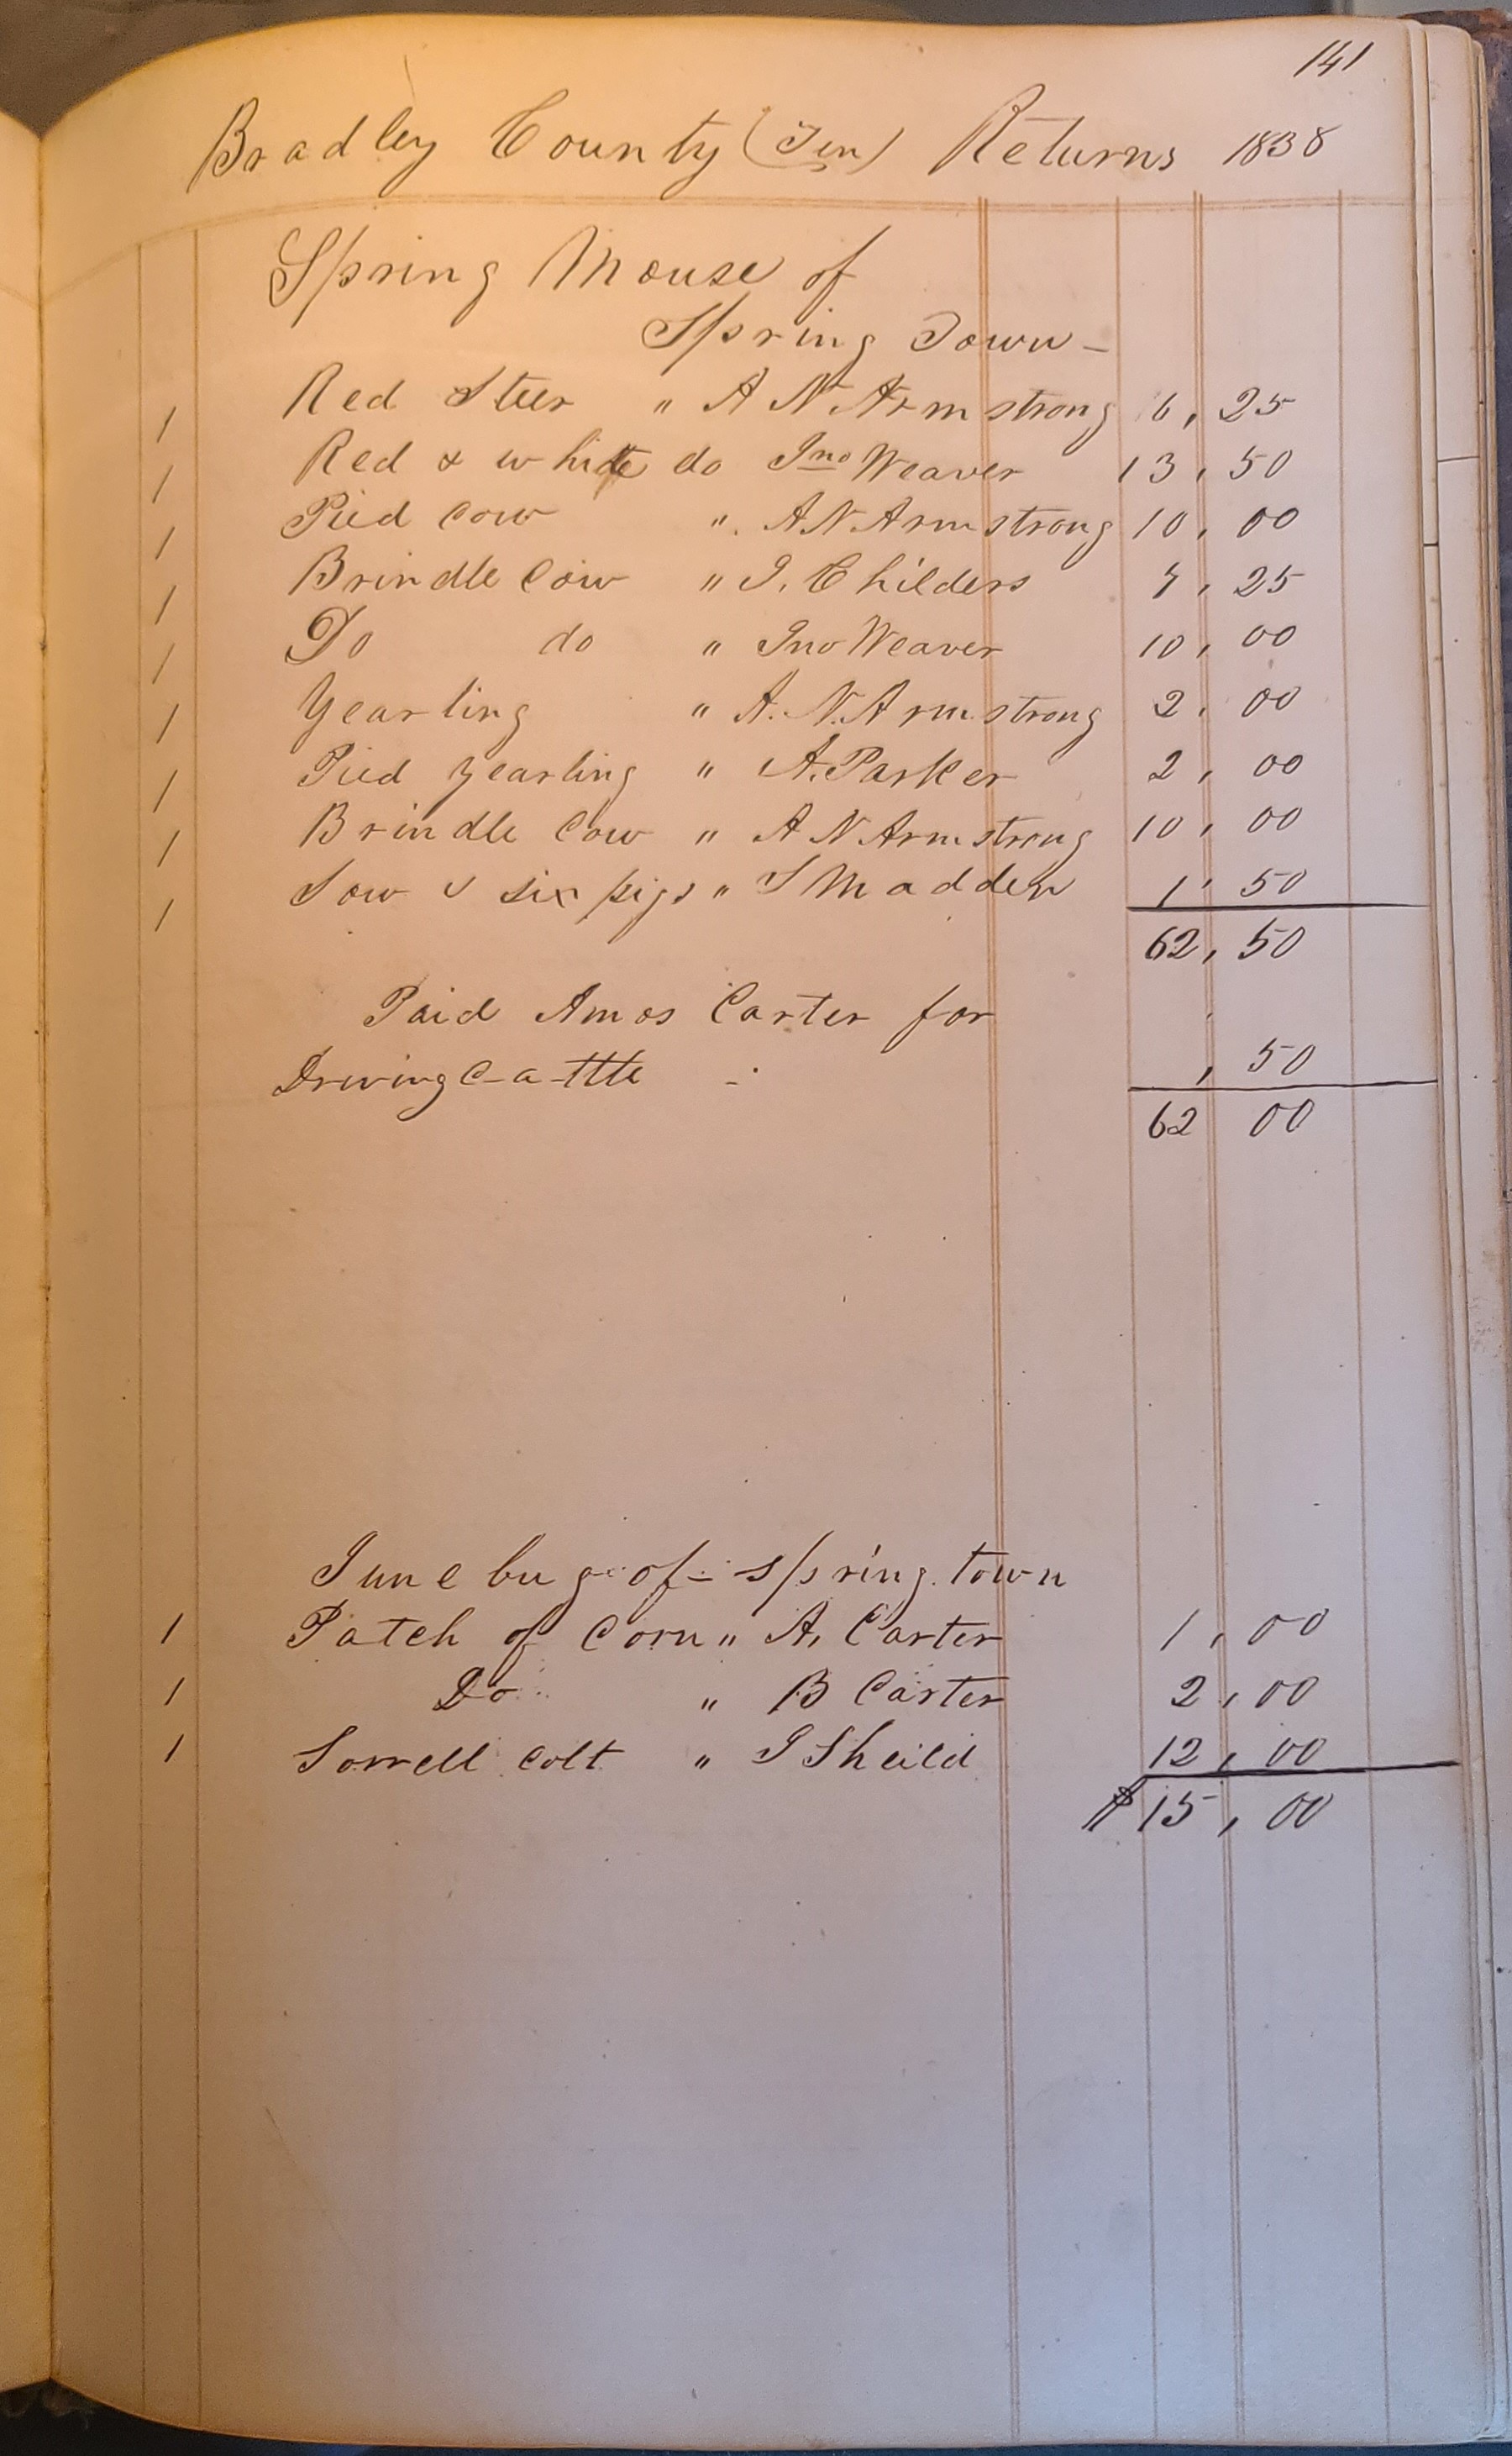 141
Bradley County (Ten) Returns 1838
Spring Mouse of
Spring Town -
1 Red Steer " A N Armstrong 6, 25
1 Red & white do Jno Weaver 13, 50
1 Pied Cow " A N Armstrong 10, 00
1 Brindle Cow " J. Childers 7, 25
1 Do do " Jno Weaver 10, 00
1 Yearling " A. N. Armstrong 2, 00
1 Pied yearling " A. Parker 2, 00
1 Brindle Cow " A N Armstrong 10, 00
1 Sow & six pigs " S Madden 1, 50
62, 50
Paid Amos Carter for
Driving Cattle - , 50
62 00
June bug of - Spring town
1 Patch of Corn " A. Carter 1, 00
1 Do " B Carter 2, 00
1 Sorrell Colt " J Sheild 12, 00
$15, 00